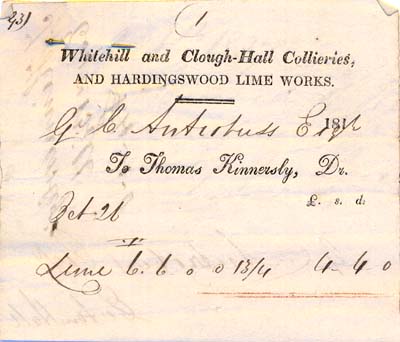 231
1
Whitehill and Clough-Hall Collieries,
AND HARDINGSWOOD LIME WORKS.
G C Antrobuss Esqr 181
To Thomas Kinnersly, Dr.
£. s. d.
Oct 26
Lime 6. 6 0 0 13/4 4-4-0